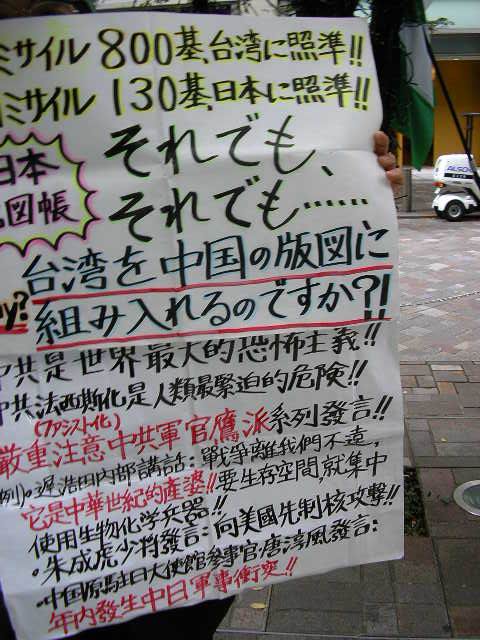 ミサイル 800基、台湾に照準!!
ミサイル 130基、日本に照準!!
日本
図帳
それでも、
それでも……、
台湾を中国の版図に
組み入れるのですか?!
中共是世界最大的恐怖主義!!
中共法西斯化是人類最緊迫的危険!!
(ファシスト化)
厳重注意中共軍官鷹派系列發言!!
例)。遅浩田内部講話:戰爭離我們不遠,
它是中華世紀的產婆!!要生存空間,就集中
使用生物化学兵器!!
。朱成虎少将發言:向美國先制核攻撃!!
・中国原駐日大使館參事官・唐淳風發言:
年内發生中日軍事衝突!!